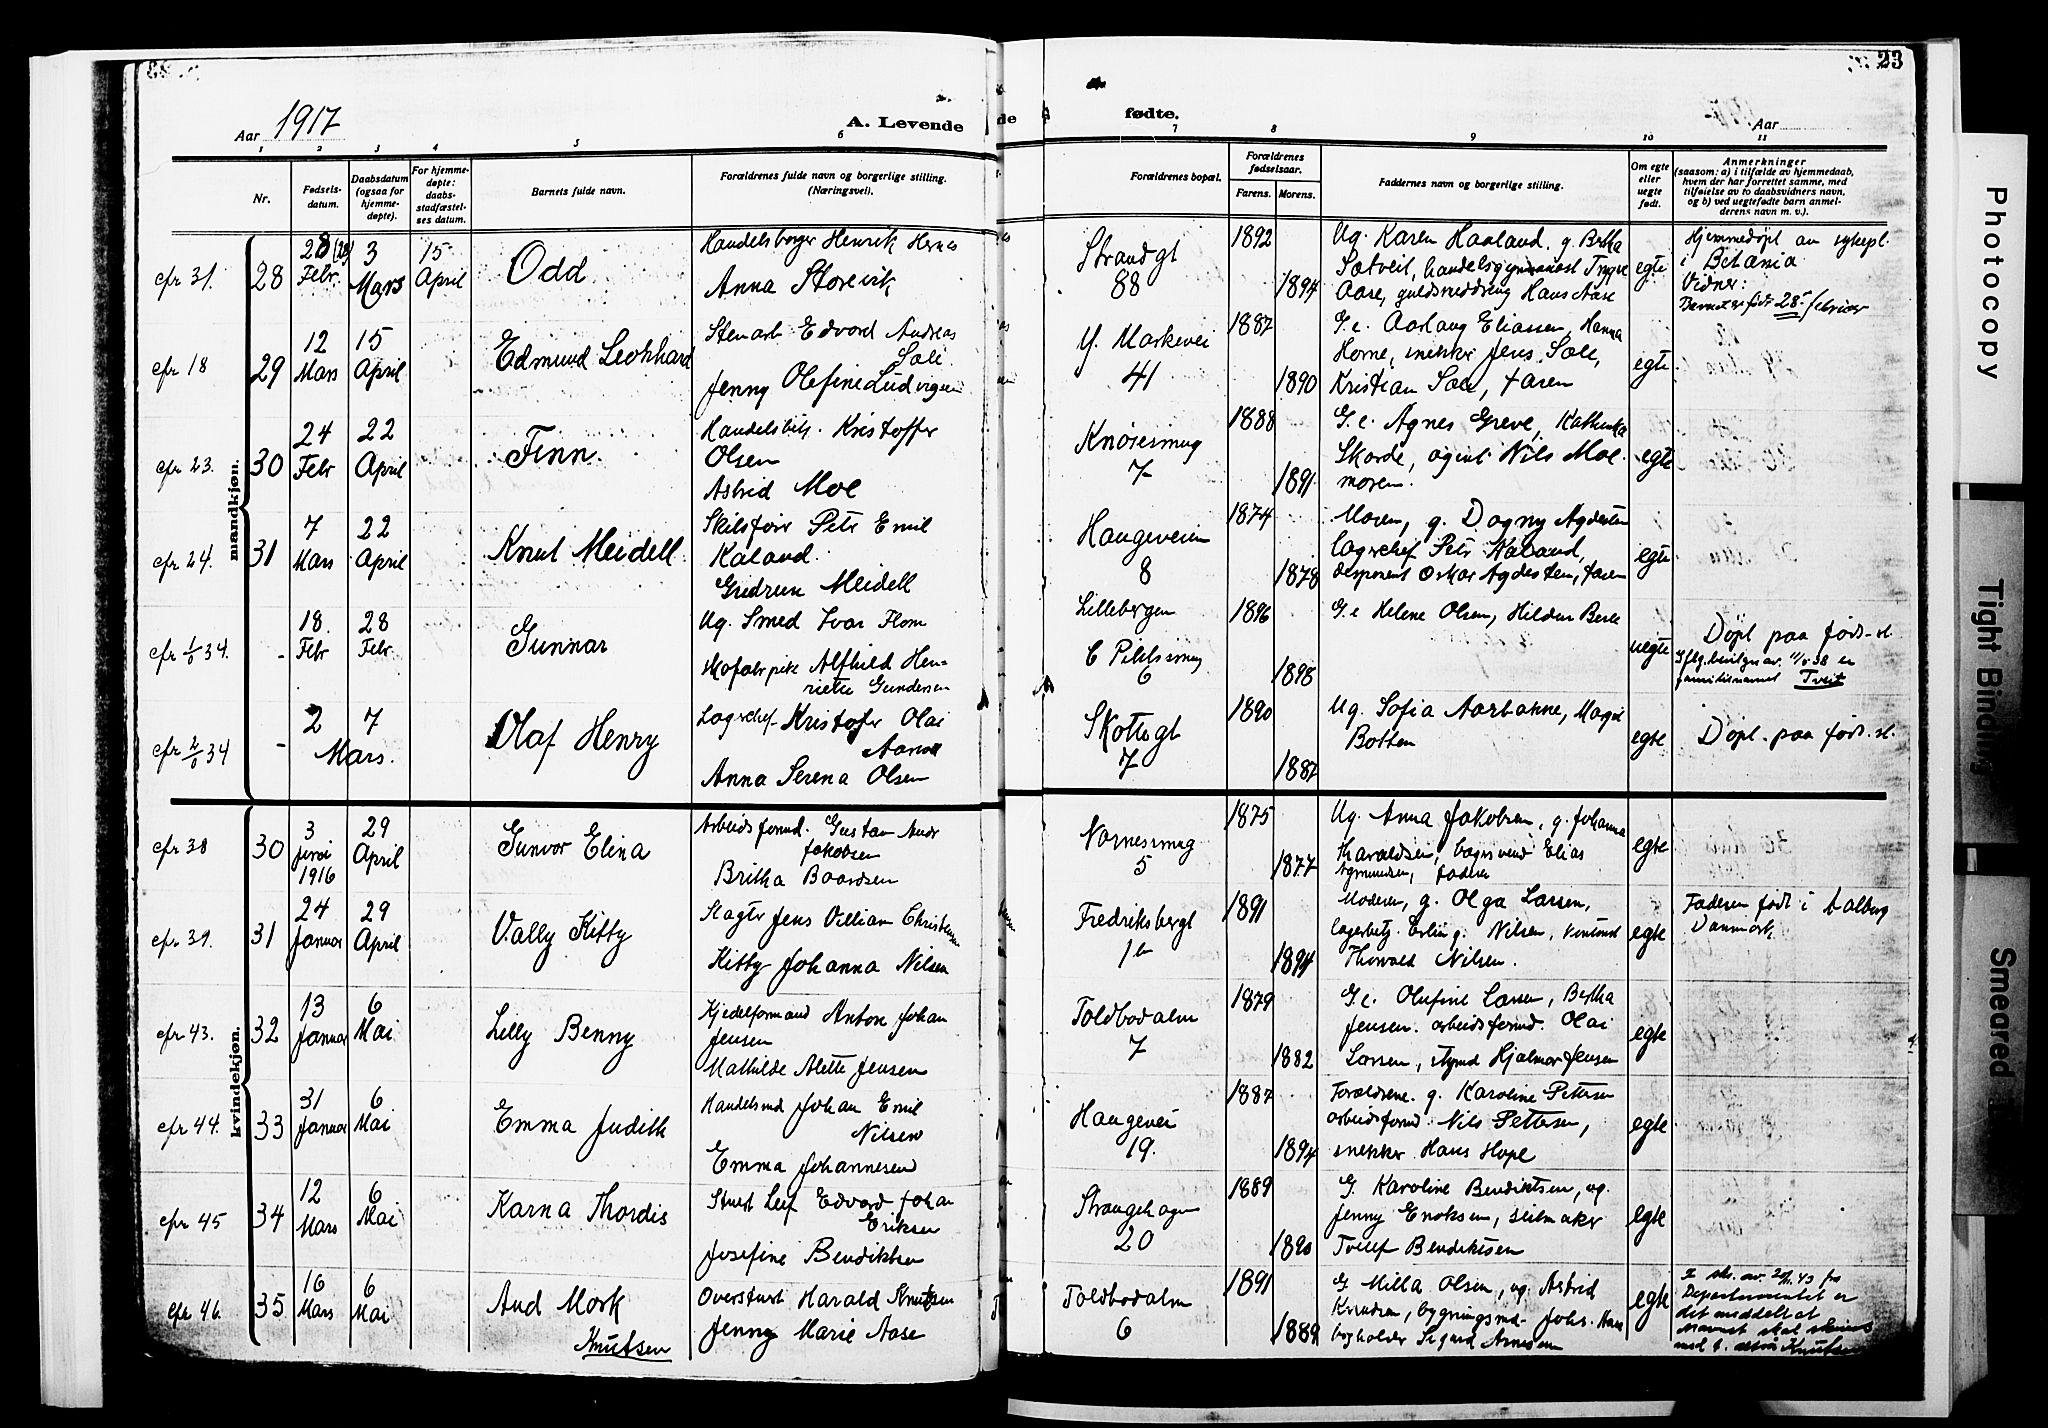 23
Aar 1917
A. Levende
fødte.
Aar
1 2 3 4 5 6 7 8 9 10 11
Nr.
Fødsels-
datum.
Daabsdatum
(ogsaa for
hjemme-
døpte).
For hjemme-
døpte:
daabs-
stadfæstel-
ses datum.
Barnets fulde navn.
Forældrenes fulde navn og borgerlige stilling.
(Næringsvei).
Forældrenes bopæl.
Forældrenes
fødselsaar.
Farens. Morens.
Faddernes navn og borgerlige stilling.
Om egte
eller
uegte
født.
Anmerkninger
(saasom: a) i tilfælde av hjemmedaab,
hvem der har forrettet samme, med
tilføielse av to daabsvidners navn,
og b) ved uegtefødte barn anmel-
derens navn m. v.).
mandkjøn.
cfr 31. 28
28 (28)
Febr
3
Mars
15
April
Odd
Handelsborger Henrik Hernes
Anna Storevik
Strandgt
88
1892
1894
Ug. Karen Haaland, g. Britha
Sætveit, handelsgymnasiast Trygve
Aase, guldsmeddreng Hans Aase
egte
Hjemmedøpt av sykepl.
i Betania
Vidner:
Barnet er født 28 februar
cfr 18 29
12
Mars
15
April
Edmund Leonhard
Stenarb. Edvard Andreas
Sole
Jenny Olefine Ludvigsen
Y. Markevei
41
1887
1890
G. c. Aaslaug Eliassen, Hanna
Horne, snekker Jens Sole,
Kristian Sole, faren
egte
cfr 23. 30
24
Febr
22
April
Finn
Handelsbetj. Kristoffer
Olsen
Astrid Moe
Knøsesmug
7
1888
1891
G. c. Agnes Greve, Kathinka
Skorde, agent Nils Moe.
moren.
egte
cfr 24. 31
7
Mars
22
April
Knut Meidell
Skibsfører Petr Emil
Kaland.
Gudrun Meidell
Haugeveien
8
1874
1878
Moren, g. Dagny Agdesten
lagerchef Petr Kaland,
disponent Oskar Agdesten, faren
egte
cfr 1/0 34. -
18.
Febr
28
Febr.
Gunnar
Ug. Smed Ivar Flom
Skofabr.pike Alfhild Hen-
riette Gundersen
Lillebergen
C Pihlssmug
6
1896
1898
G. c Helene Olsen, Hildur Berle
uegte
Døpt paa føds. st.
Iflg. bevilgn av 11/5 38 er
familienavnet Tveit
cfr 2/0 34 -
2 7
Mars.
Olaf Henry
Lagerchef Kristofer Olai
Aarvoll
Anna Serena Olsen
Skottegt
7
1890
1887
Ug. Sofia Aarbakke, Magda
Botten
egte
Døpt paa føds. st.
kvindekjøn.
cfr 38 30
3
Juni
1916
29
April
Gunvor Elina
Arbeidsformd. Gustav Andr
Jakobsen
Britha Baardsen
Nornesmug
5
1875
1877
Ug. Anna Jakobsen, g. Johanna
Haraldsen, bagersvend Elias
Agmundsen, faderen
egte
cfr 39. 31
24
Januar
29
April
Vally Kitty
Slagter Jens Villiam Christensen
Kitty Johanna Nilsen
Fredriksbergt
1b
1891
1894
Moderen, g. Olga Larsen,
lagerbetj. Erling Nilsen,
Thorvald Nilsen.
egte
Faderen født i Aalborg
Danmark
cfr 43. 32
13
Januar
6
Mai
Lilly Benny
Kjedelformand Anton Johan
Jensen
Mathilde Alette Jensen
Toldbodalm
7
1879
1882
G. c. Olufine Larsen, Bertha
Jensen. arbeidsformd. Olai
Larsen, styrmd Hjalmar Jensen
egte
cfr 44. 33
31
Januar
6
Mai
Emma Judith
Handelsmd Johan Emil
Nilsen
Emma Johannesen
Haugevei
19.
1887
1894
Forældrene. g. Karoline Petersen
arbeidsformd. Nils Pettersen,
snekker Hans Hope
egte
cfr 45 34
12
Mars
6
Mai
Karna Thordis
Stuert Leif Edvard Johan
Eriksen
Josefine Bendiktsen
Strangehagen
20
1889
1890
G. Karoline Bendiktsen, ug.
Jenny Enoksen, seilmaker
Tollef Bendiktsen
egte
cfr 46. 35
16
Mars
6
Mai
Aud Mork
Knutsen
Overstuert Harald Knutsen
Jenny Marie Aase
Toldbodalm
6
1891
1889
G Milla Olsen, ug. Astrid
Knudsen, bygningsmd. Johs. Aase
bogholder Sigurd Arnesen
egte
I skr. av 20/11. 43 fra
Departementet er
det meddelt at
navnet skal skrives
med t. altså Knutsen
Photocopy
Tight Binding
Smeared